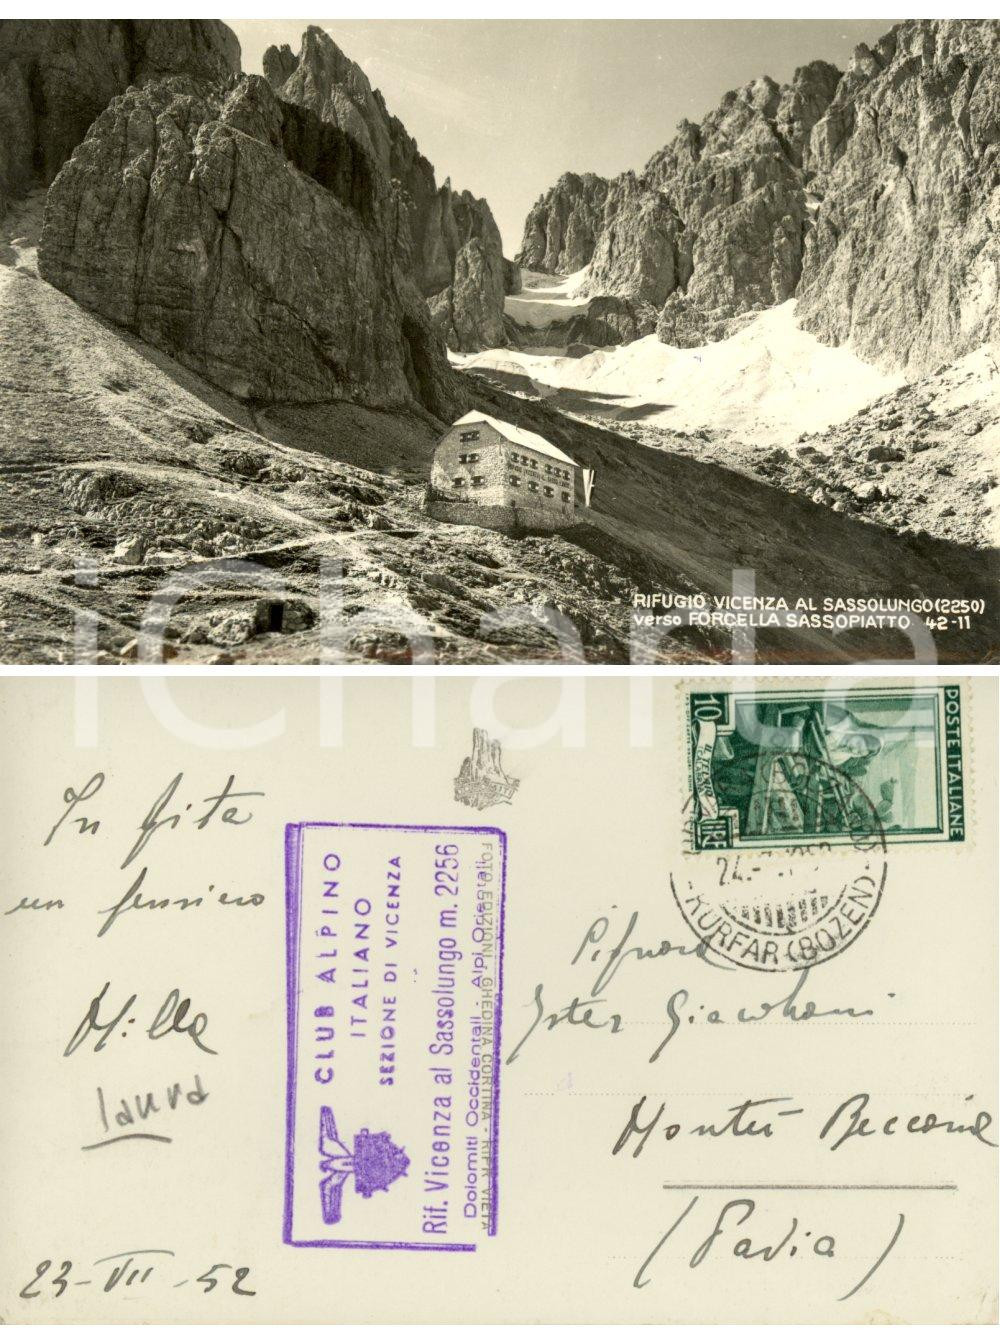 RIFUGIO VICENZA AL SASSOLUNGO (2250)
verso FORCELLA SASSOPIATTO. 42-11
iCharta
In gita
un pensiero
Milla
laura
23-VII-52
CLUB ALPINO
ITALIANO
SEZIONE DI VICENZA
Rif. Vicenza al Sassolungo m. 2256
Dolomiti Occidentali - Alpi Orientali
FOTO EDIZIONI - GHEDINA CORTINA - RIPR. VIETATA
POSTE ITALIANE
10
LIRE
24.
KURFAR (BOZEN)
Signora
Ester Giacobone
Montù Beccaria
(Pavia)